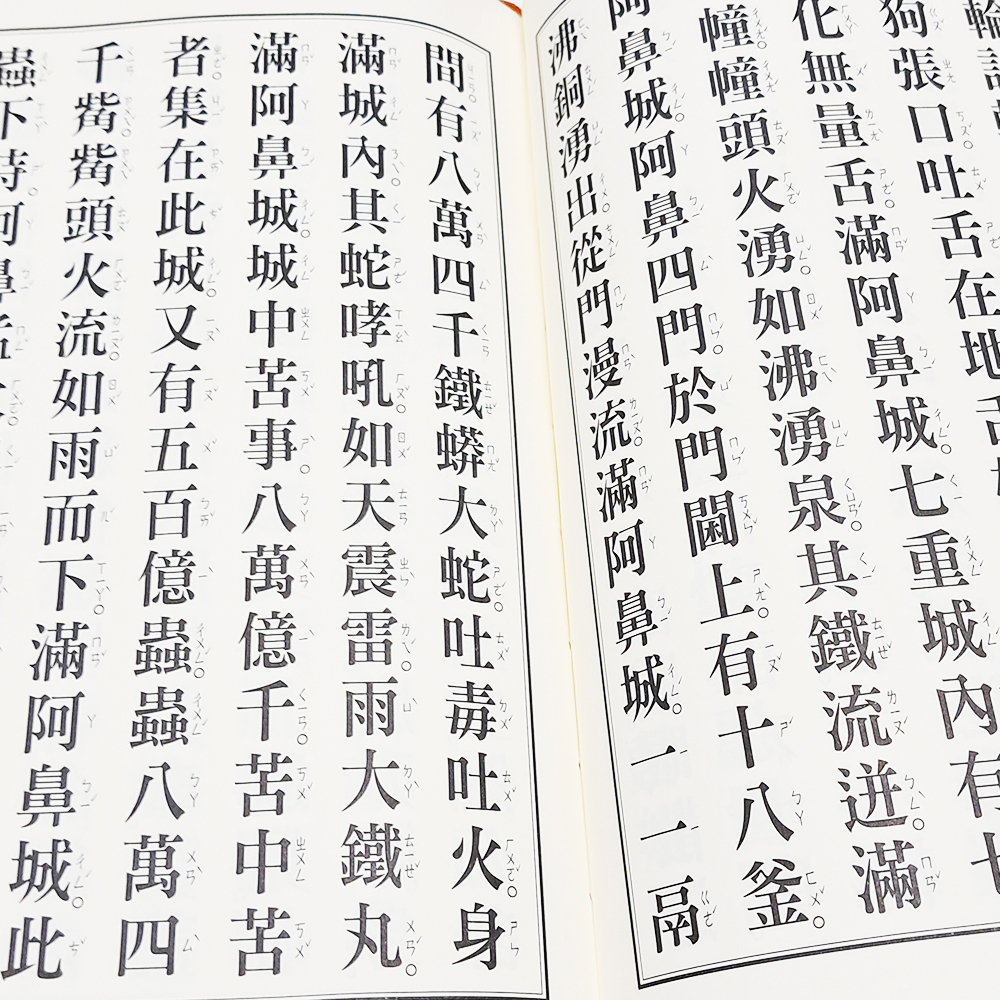 輪
狗張口。吐舌在地舌
化無量舌。滿阿鼻城。七重城內有七
幢。幢頭火湧。如沸湧泉。其鐵流迸。滿
阿鼻城。阿鼻四門。於門閫上。有十八釜。
沸銅湧出。從門漫流。滿阿鼻城。一一鬲
間。有八萬四千鐵蟒大蛇。吐毒吐火。身
滿城內。其蛇哮吼。如天震雷。雨大鐵丸。
滿阿鼻城。城中苦事。八萬億千。苦中苦
者。集在此城。又有五百億蟲。蟲八萬四
千觜。觜頭火流。如雨而下。滿阿鼻城。此
蟲下時。阿鼻猛